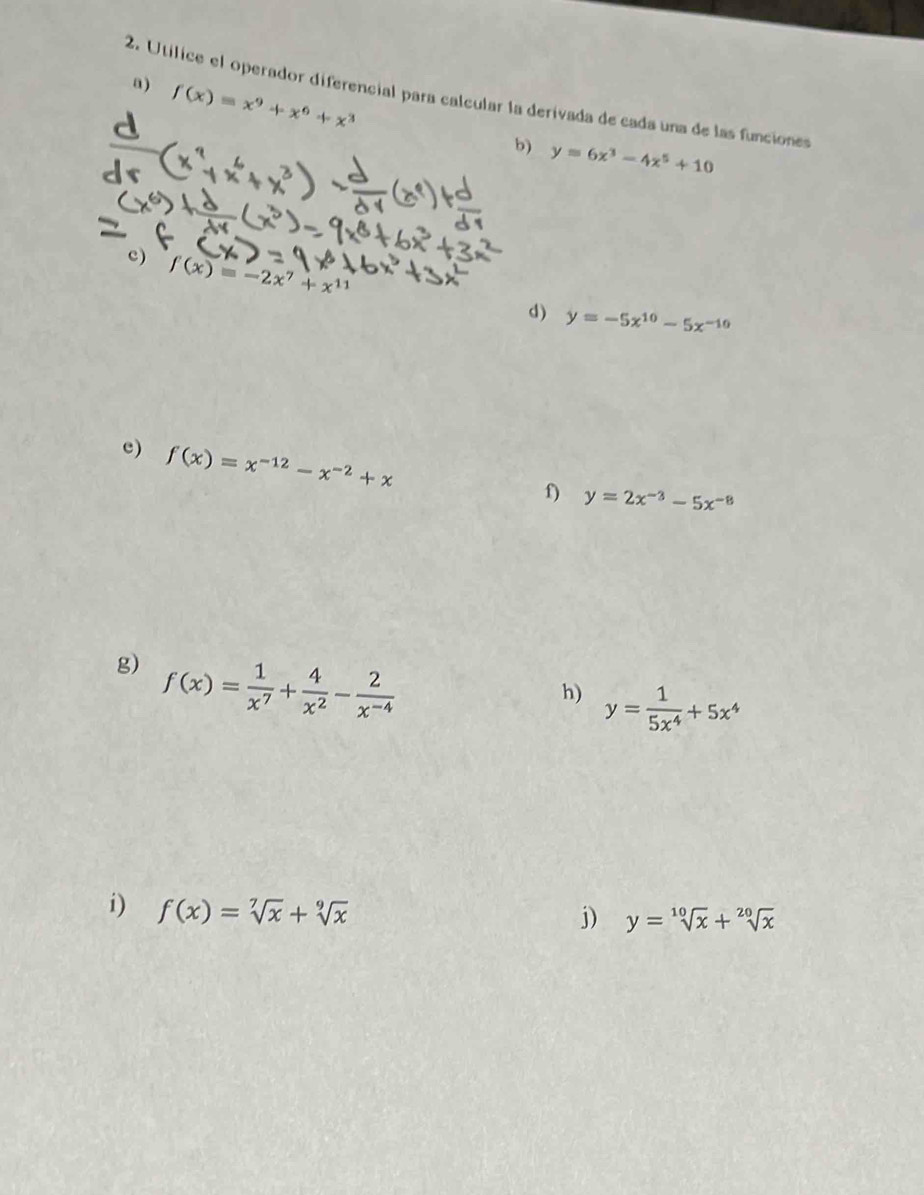 2. Utilice el operador diferencial para calcular la derivada de cada una de las funciones
a) f(x) = x⁹ + x⁶ + x³
b) y = 6x³ − 4x⁵ + 10
d/dx (x⁹ + x⁶ + x³) = d/dx (x⁹) + d/dx
(x⁶) + d/dx (x³) = 9x⁸ + 6x³ + 3x²
= f (x) = 9x⁸ + 6x³ + 3x²
c) f(x) = −2x⁷ + x¹¹
d) y = −5x¹⁰ − 5x⁻¹⁰
e) f(x) = x⁻¹² − x⁻² + x
f) y = 2x⁻³ − 5x⁻⁸
g) f(x) = 1/x⁷ + 4/x² − 2/x⁻⁴
h) y = 1/5x⁴ + 5x⁴
i) f(x) = ⁷√x + ⁹√x
j) y = ¹⁰√x + ²⁰√x